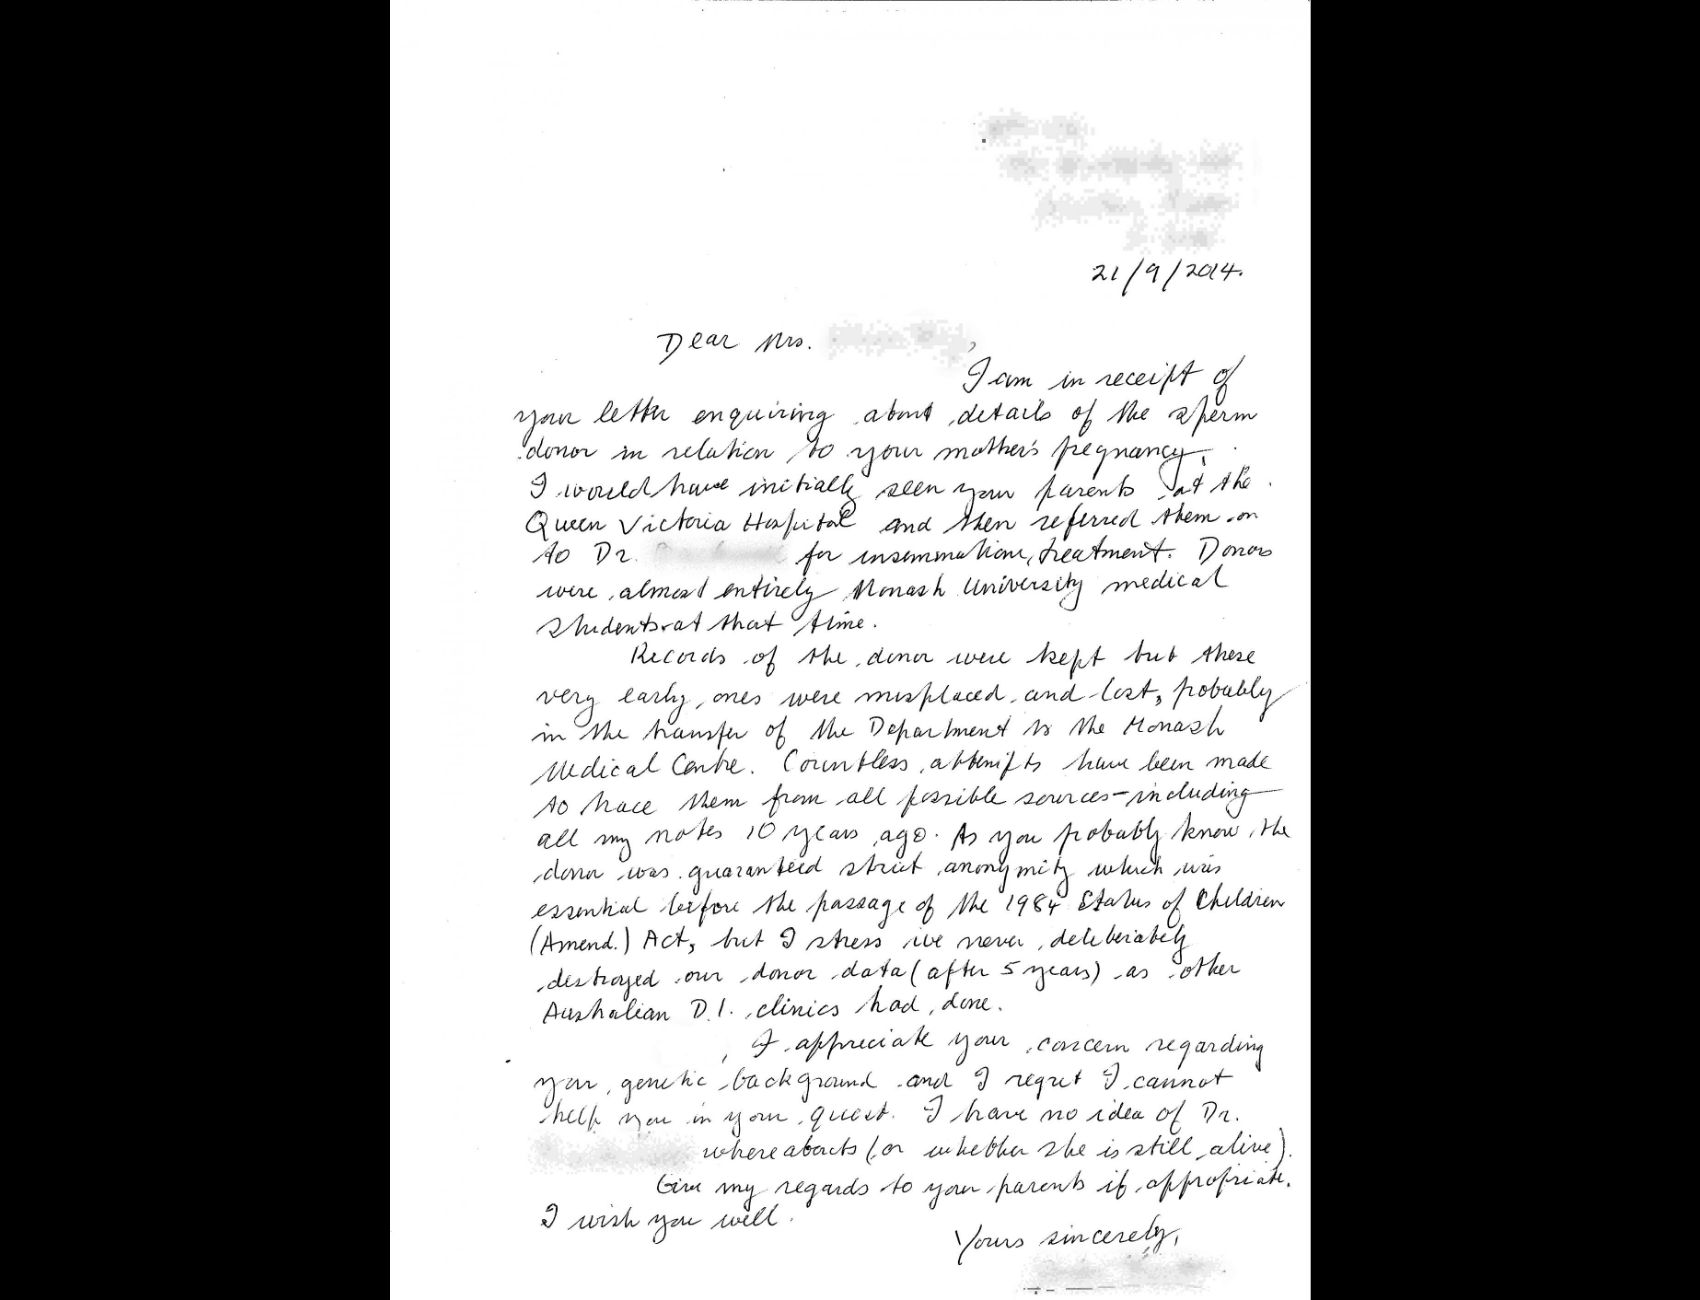 21/9/2014.
Dear Mrs. ,
I am in receipt of
your letter enquiring about details of the sperm
donor in relation to your mother's pregnancy.
I would have initially seen your parents at the
Queen Victoria Hospital and then referred them on
to Dr. for insemination treatment. Donors
were almost entirely Monash University medical
students at that time.
Records of the donor were kept but these
very early ones were misplaced and lost, probably
in the transfer of the Department to the Monash
Medical Centre. Countless attempts have been made
to trace them from all possible sources - including
all my notes 10 years ago. As you probably know the
donor was guaranteed strict anonymity which was
essential before the passage of the 1984 Status of Children
(Amend.) Act, but I stress we never deliberately
destroyed our donor data (after 5 years) as other
Australian D.I. clinics had done.
I appreciate your concern regarding
your genetic background and I regret I cannot
help you in your quest. I have no idea of Dr.
whereabouts (or whether she is still alive).
Give my regards to your parents if appropriate.
I wish you well.
Yours sincerely,